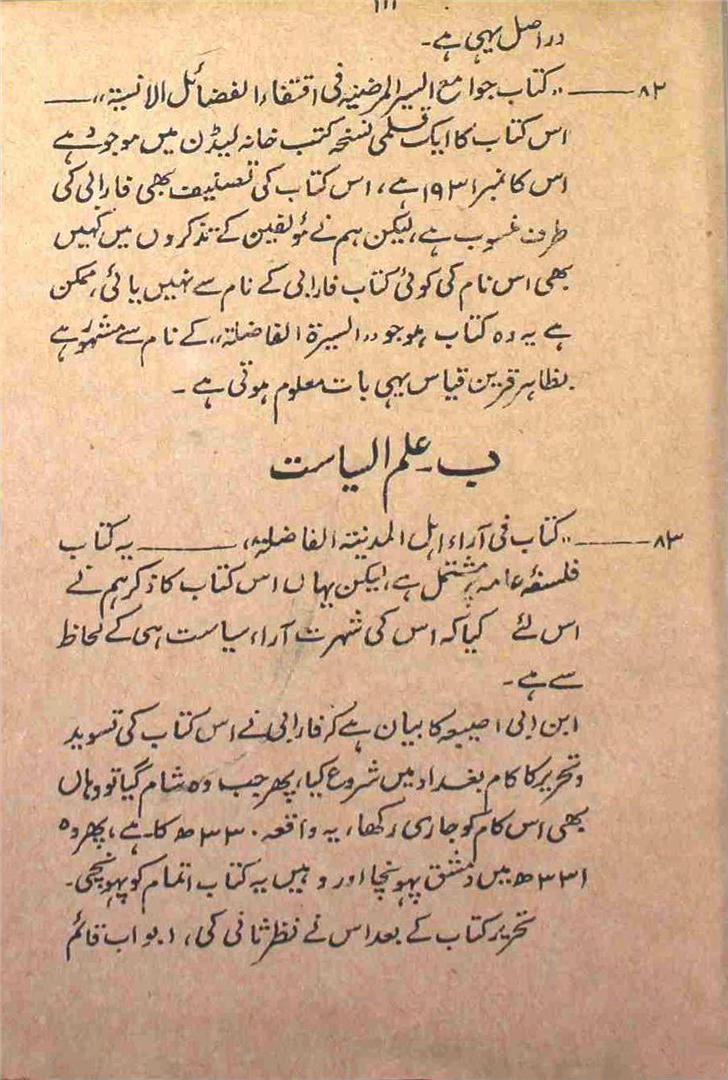 ۱۱۱
دراصل یہی ہے۔
۸۲ ——— ،،کتاب جوامع السیر المرضیہ فی اقتفاء الفضائل الانسیۃ،، ———
اس کتاب کا ایک قلمی نسخہ کتب خانہ لیڈن میں موجود ہے
اس کا نمبر ۱۹۳۱ ہے، اس کتاب کی تصنیف بھی فارابی کی
طرف غسوب ہے، لیکن ہم نے مؤلفین کے تذکروں میں کہیں
بھی اس نام کی کوئی کتاب فارابی کے نام سے نہیں پائی، ممکن
ہے یہ وہ کتاب ہو جو ،،السیرۃ الفاضلۃ،، کے نام سے مشہور ہے
بظاہر قرین قیاس یہی بات معلوم ہوتی ہے۔
ب۔ علم السیاست
۸۳ ——— ،،کتاب فی آراء اہل المدینۃ الفاضلۃ،، ——— یہ کتاب
فلسفۂ عامہ پر مشتمل ہے، لیکن یہاں اس کتاب کا ذکر ہم نے
اس لئے کیا کہ اس کی شہرت آراء سیاست ہی کے لحاظ
سے ہے۔
ابن ابی اصیبعہ کا بیان ہے کہ فارابی نے اس کتاب کی تسوید
و تحریر کا کام بغداد میں شروع کیا، پھر جب وہ شام گیا تو وہاں
بھی اس کام کو جاری رکھا، یہ واقعہ ۳۳۰ھ کا ہے، پھر وہ
۳۳۱ھ میں دمشق پہونچا اور وہیں یہ کتاب اتمام کو پہونچی۔
تحریر کتاب کے بعد اس نے نظر ثانی کی، ابواب قائم